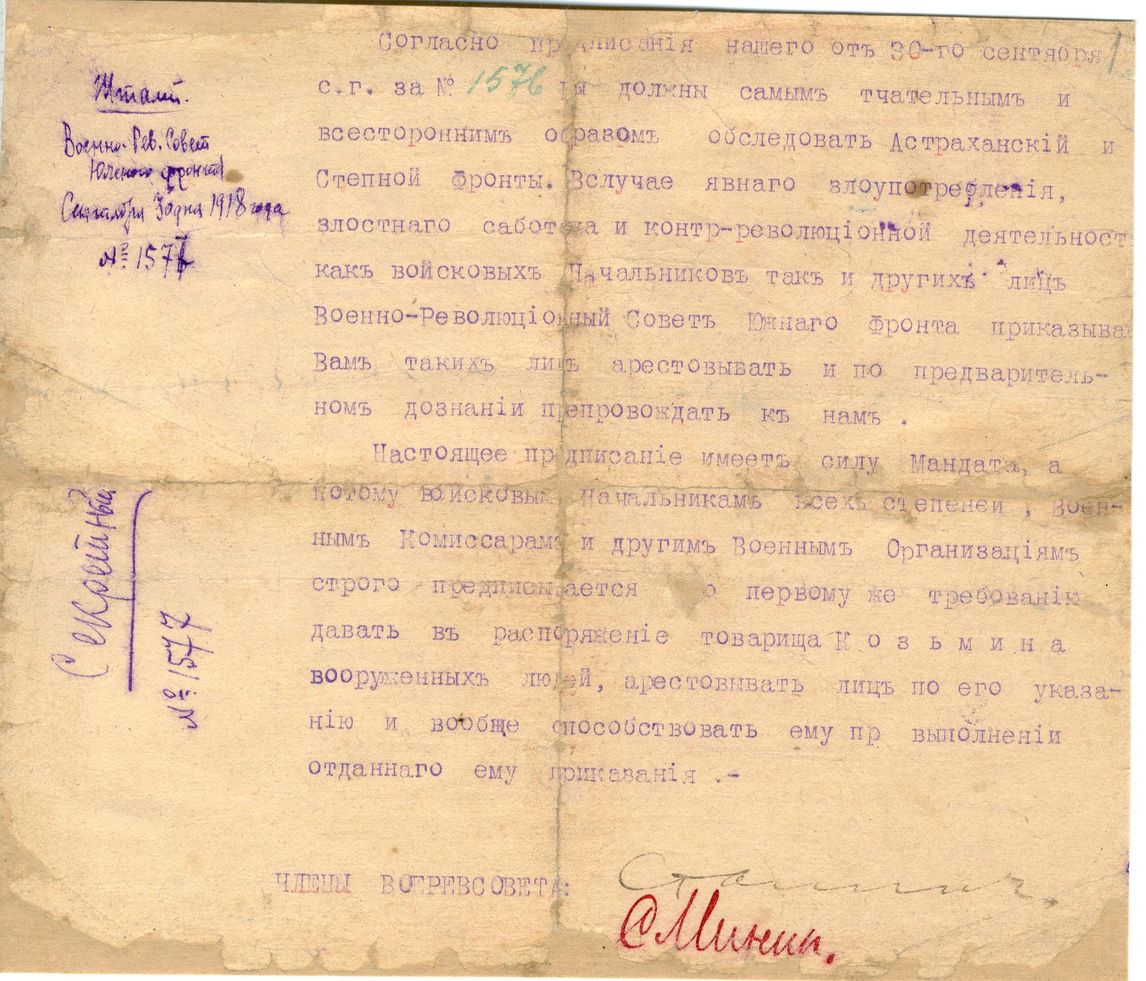 Штамп.
Военно-Рев. Совет
Южного фронта
Сентября 30 дня 1918 года
№ 1577
Секретный
№ 1577
Согласно предписанія нашего отъ 30-го сентября
с.г. за № 1576 должны самымъ тчательнымъ и
всестороннимъ образомъ обследовать Астраханскій и
Степной Фронты. Вслучае явнаго злоупотребленія,
злостнаго саботажа и контр-революціонной деятельност
какъ войсковыхъ Начальниковъ такъ и другихъ лицъ
Военно-Революціонный Советъ Южнаго Фронта приказыва
Вамъ такихъ лицъ арестовывать и по предваритель-
номъ дознаніи препровождать къ намъ .
Настоящее предписаніе имеетъ силу Мандата, а
потому войсковым Начальникамъ всехъ степеней , Воен-
нымъ Комиссарамъ и другимъ Военнымъ Организаціямъ
строго предписывается о первому же требованію
давать въ распоряженіе товарища К о з ь м и н а
вооруженныхъ людей, арестовывать лицъ по его указа-
нію и вообще способствовать ему пр выполненіи
отданнаго ему приказанія .-
ЧЛЕНЫ ВОЕРЕВСОВЕТА:
Сталин.
С Минин.